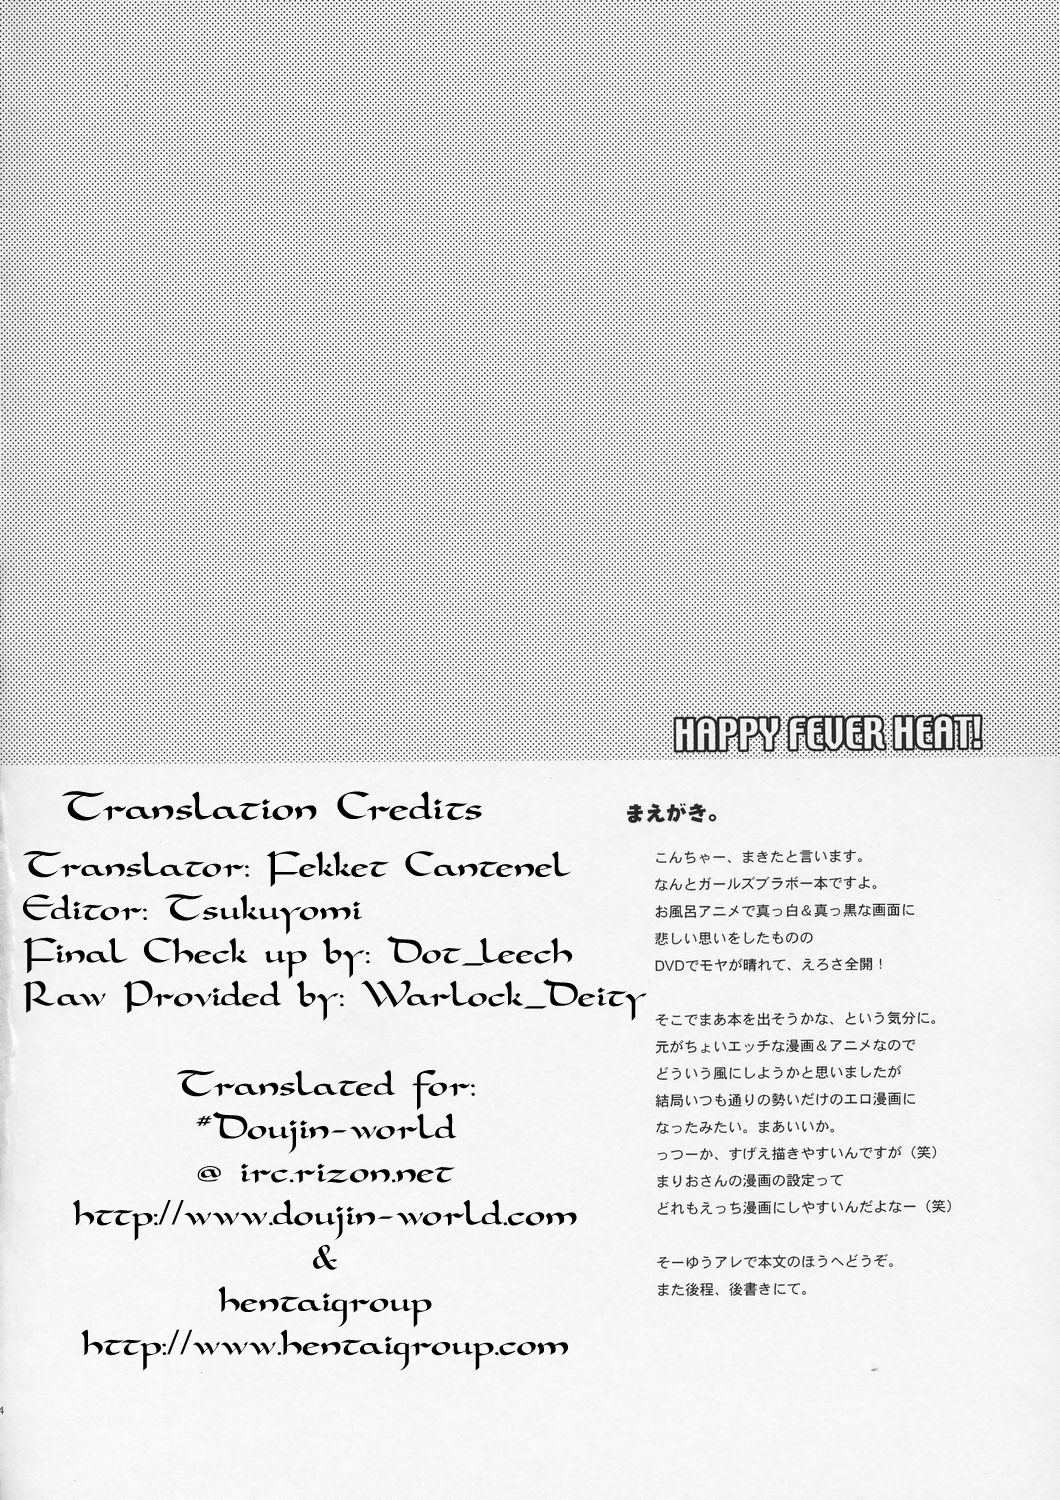 HAPPY FEVER HEAT!
Translation Credits
Translator: Fekket Cantenel
Editor: Tsukuyomi
Final Check up by: Dot_leech
Raw Provided by: Warlock_Deity
Translated for:
#Doujin-world
@ irc.rizon.net
http://www.doujin-world.com
&
hentaigroup
http://www.hentaigroup.com
まえがき。
こんちゃー、まきたと言います。
なんとガールズブラボー本ですよ。
お風呂アニメで真っ白&真っ黒な画面に
悲しい思いをしたものの
DVDでモヤが晴れて、えろさ全開！
そこでまあ本を出そうかな、という気分に。
元がちょいエッチな漫画&アニメなので
どういう風にしようかと思いましたが
結局いつも通りの勢いだけのエロ漫画に
なったみたい。まあいいか。
っつーか、すげえ描きやすいんですが（笑）
まりおさんの漫画の設定って
どれもえっち漫画にしやすいんだよなー（笑）
そーゆうアレで本文のほうへどうぞ。
また後程、後書きにて。
4